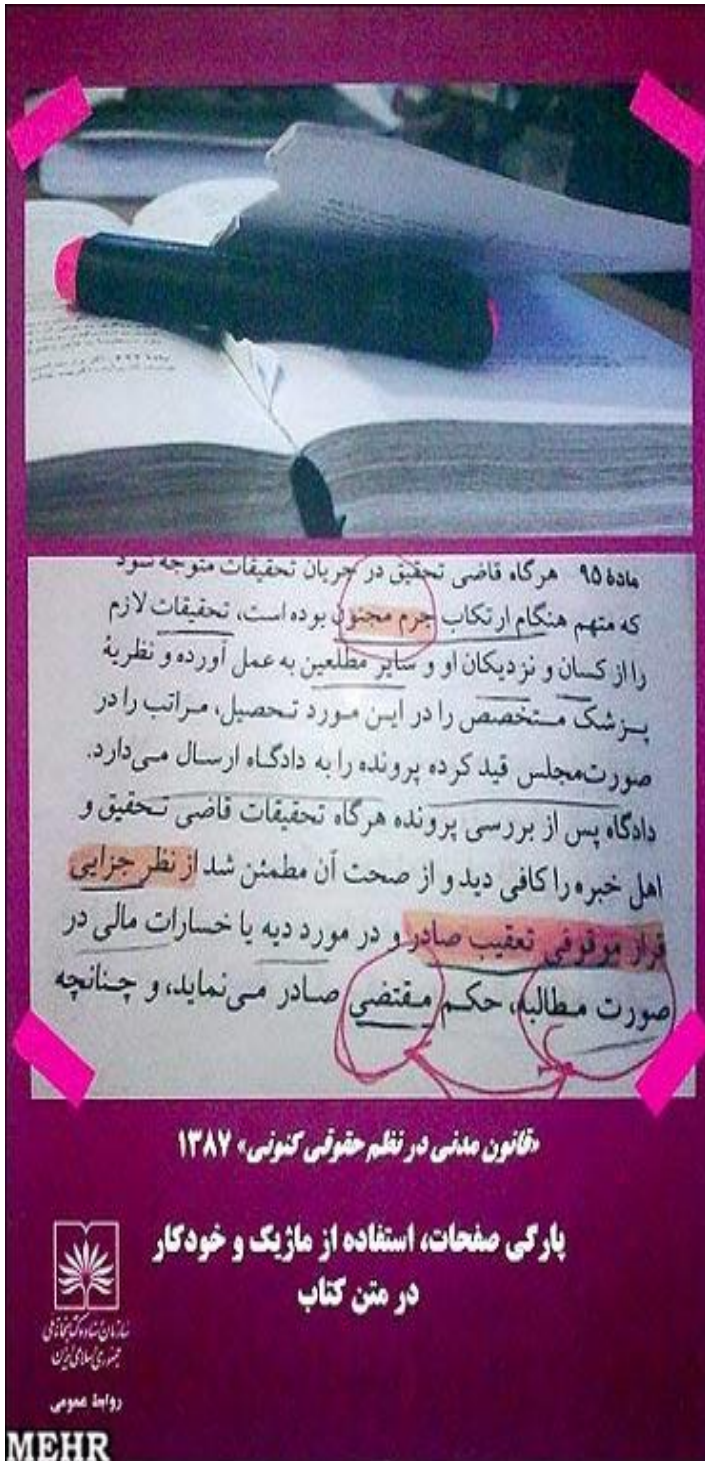 مادهٔ ۹۵ هرگاه قاضی تحقیق در جریان تحقیقات متوجه شود
که متهم هنگام ارتکاب جرم مجنون بوده است، تحقیقات لازم
را از کسان و نزدیکان او و سایر مطلعین به عمل آورده و نظریهٔ
پـزشک مـتخصص را در ایـن مـورد تـحصیل، مـراتب را در
صورت‌مجلس قید کرده پرونده را به دادگـاه ارسـال مـی‌دارد.
دادگاه پس از بررسی پرونده هرگاه تحقیقات قاضی تـحقیق و
اهل خبره را کافی دید و از صحت آن مطمئن شد از نظر جزایی
قرار موقوفی تعقیب صادر و در مورد دیه یا خسارات مالی در
صورت مـطالبه، حکـم مـقتضی صادر مـی‌نماید، و چـنانچه
«قانون مدنی در نظم حقوقی کنونی» ۱۳۸۷
پارگی صفحات، استفاده از ماژیک و خودکار
در متن کتاب
سازمان اسناد و کتابخانه ملی
جمهوری اسلامی ایران
روابط عمومی
MEHR